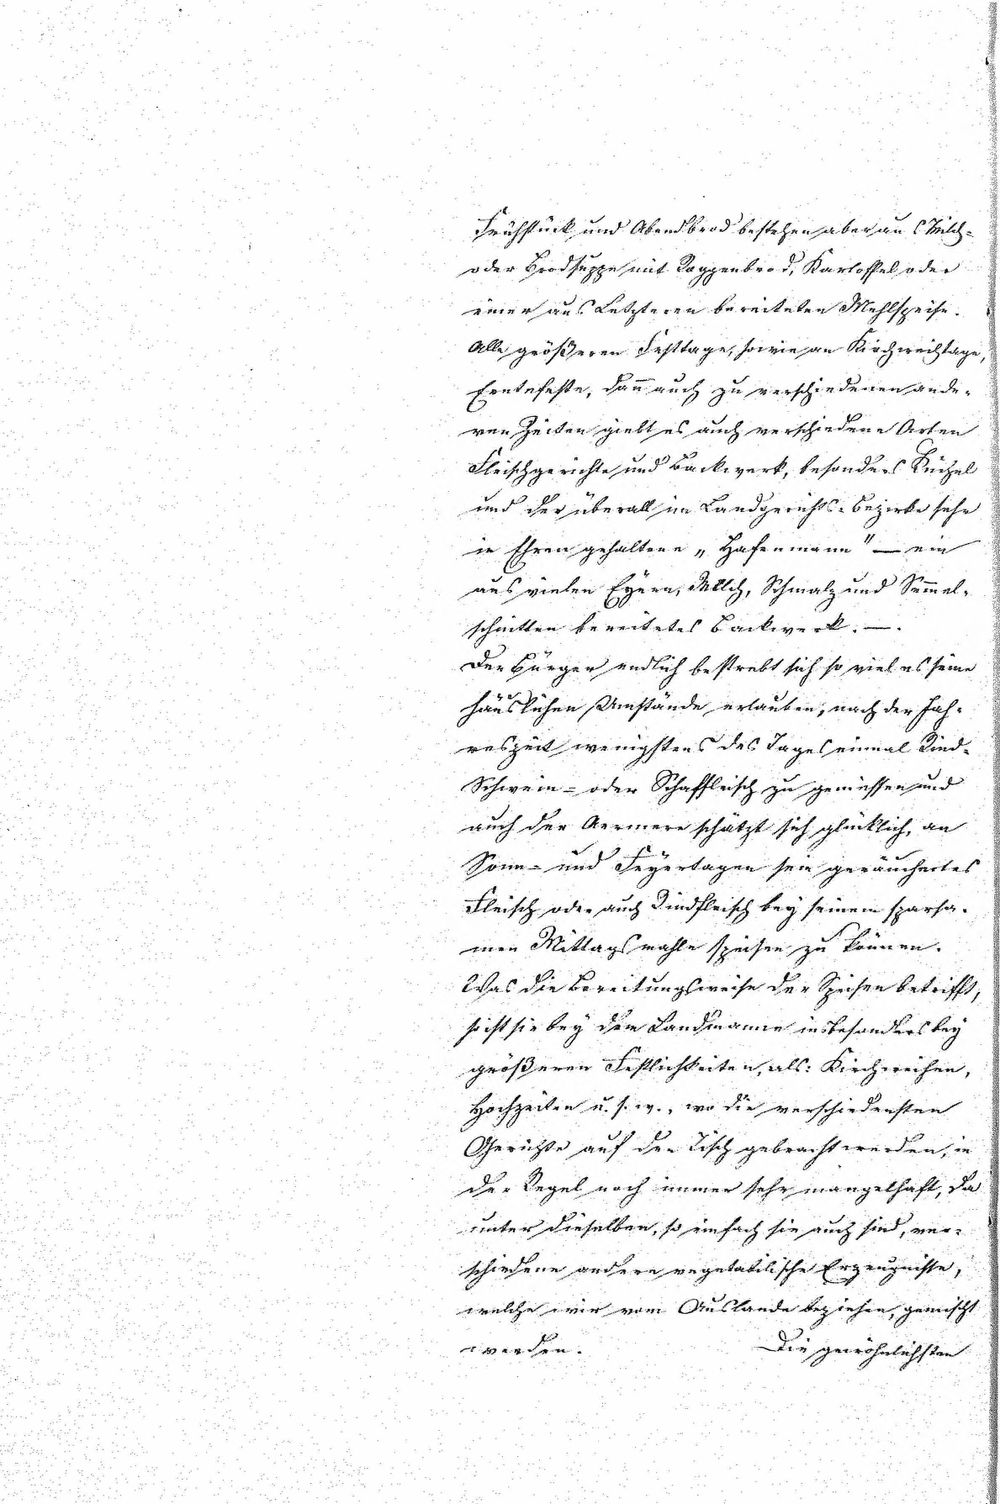 Frühstück und Abendbrod bestehen aber aus Milch-
oder Brodsuppe mit Roggenbrod, Kartoffel oder
einer aus Letzteren bereiteten Mehlspeise.
Alle größeren Festtage, sowie an Kirchweihtage,
Erntefeste, dann auch zu verschiedenen ande-
ren Zeiten giebt es auch verschiedene Arten
Fleischgerichte und Backwerk, besonders Küchel
und der überall im Landgerichts-Bezirke sehr
in Ehren gehaltene „Hafenmann" — ein
aus vielen Eyern, Milch, Schmalz und Semmel-
schnitten bereitetes Backwerk. —.
Der Bürger endlich bestrebt sich so viel es seine
häuslichen Umstände erlauben, nach der Jah-
reszeit wenigstens des Tages einmal Rind-
Schwein- oder Schaffleisch zu geniessen und
auch der Aermere schätzt sich glücklich, an
Sonn- und Feyertagen sein geräuchertes
Fleisch oder auch Rindfleisch bey seinem sparsa-
men Mittagsmahle speisen zu können.
Was die Bereitungsweise der Speisen betrifft,
so ist sie bey dem Landmanne insbesonders bey
größeren Festlichkeiten, als: Kirchweihen,
Hochzeiten u. s. w., wo die verschiedensten
Gerichte auf den Tisch gebracht werden, in
der Regel noch immer sehr mangelhaft, da
unter dieselben, so einfach sie auch sind, ver-
schiedene andere vegetabilische Erzeugnisse,
welche wir vom Auslande beziehen, gemischt
werden. Die gewöhnlichsten